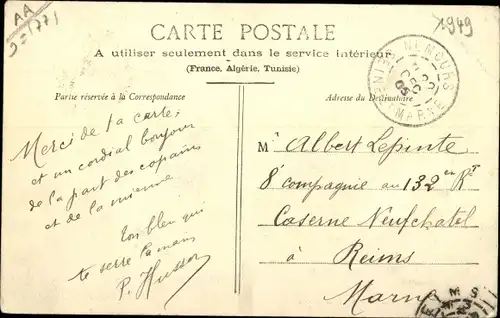 AA
1949
CARTE POSTALE
A utiliser seulement dans le service intérieur
(France, Algérie, Tunisie)
Partie réservée à la Correspondance
Adresse du Destinataire
NEMOURS
SEINE ET MARNE
DEC
05
Merci de ta carte,
et un cordial bonjour
de la part des copains
et de la mienne
Ton bleu qui
te serre la main
P. Husson
Mr Albert Lepinte
8e compagnie au 132em Rt
Caserne Neufchatel
à
Reims
Marne